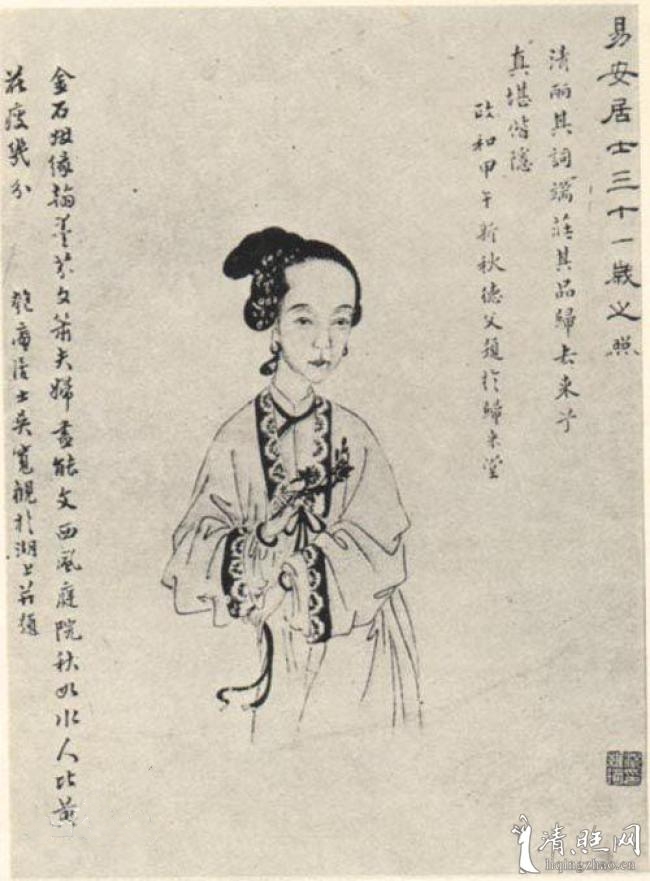 易安居士三十一歲之照
清丽其詞端莊其品歸去来兮
真堪偕隱
政和甲午新秋德父題於歸来堂
金石姻緣翰墨芬文簫夫婦盡能文西風庭院秋如水人比黃
花瘦幾分
匏庵居士吳寬觀於湖上并題
清照网
liqingzhao.cn